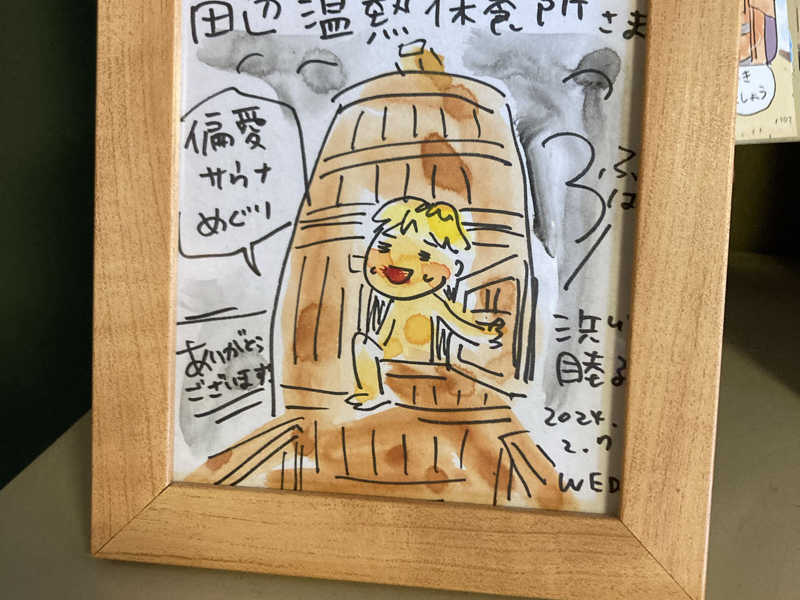 田辺温熱保養所さま
偏愛
サウナ
めぐり
ありがとう
ございます
ふは
浜
睦
2024.
2.7
WED
き
しょう